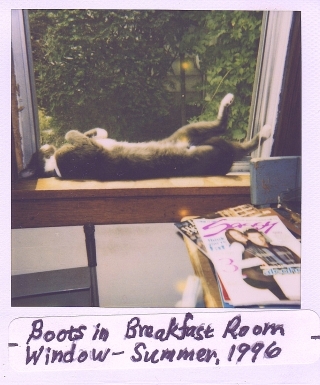 Sassy
Boots in Breakfast Room
Window - Summer, 1996